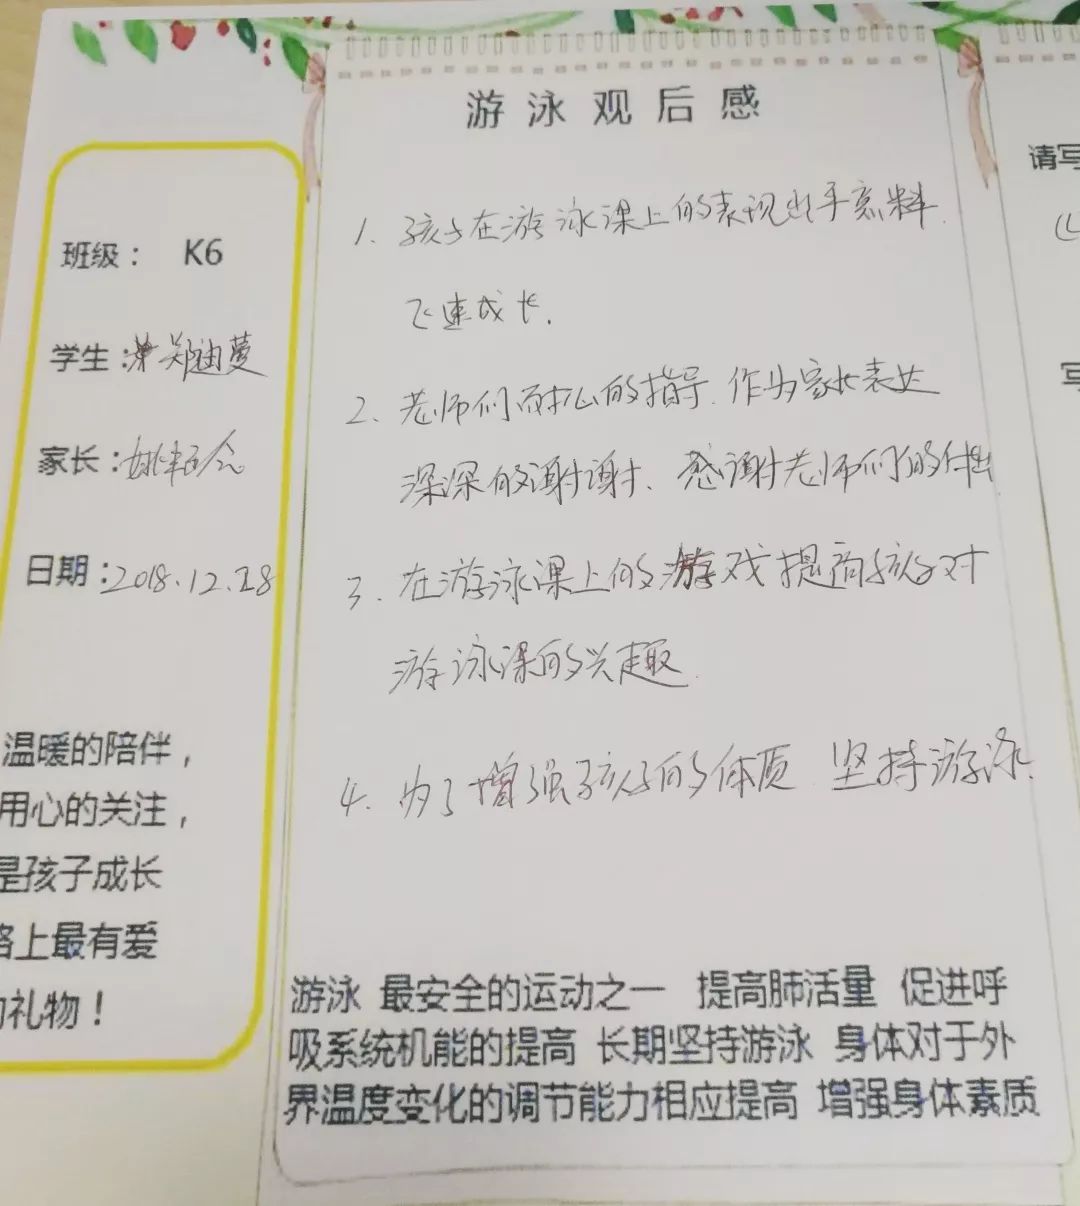 游泳观后感
班级： K6
学生：郑迪蔓
家长：
日期：2018.12.28
温暖的陪伴，
用心的关注，
是孩子成长
路上最有爱
的礼物！
1. 孩子在游泳课上的表现出乎意料
飞速成长.
2. 老师们耐心的指导. 作为家长表达
深深的谢谢、感谢老师们的付出
3. 在游泳课上的游戏提高孩子对
游泳课的兴趣
4. 为了增强孩子的体质 坚持游泳.
游泳 最安全的运动之一 提高肺活量 促进呼
吸系统机能的提高 长期坚持游泳 身体对于外
界温度变化的调节能力相应提高 增强身体素质
请写
写